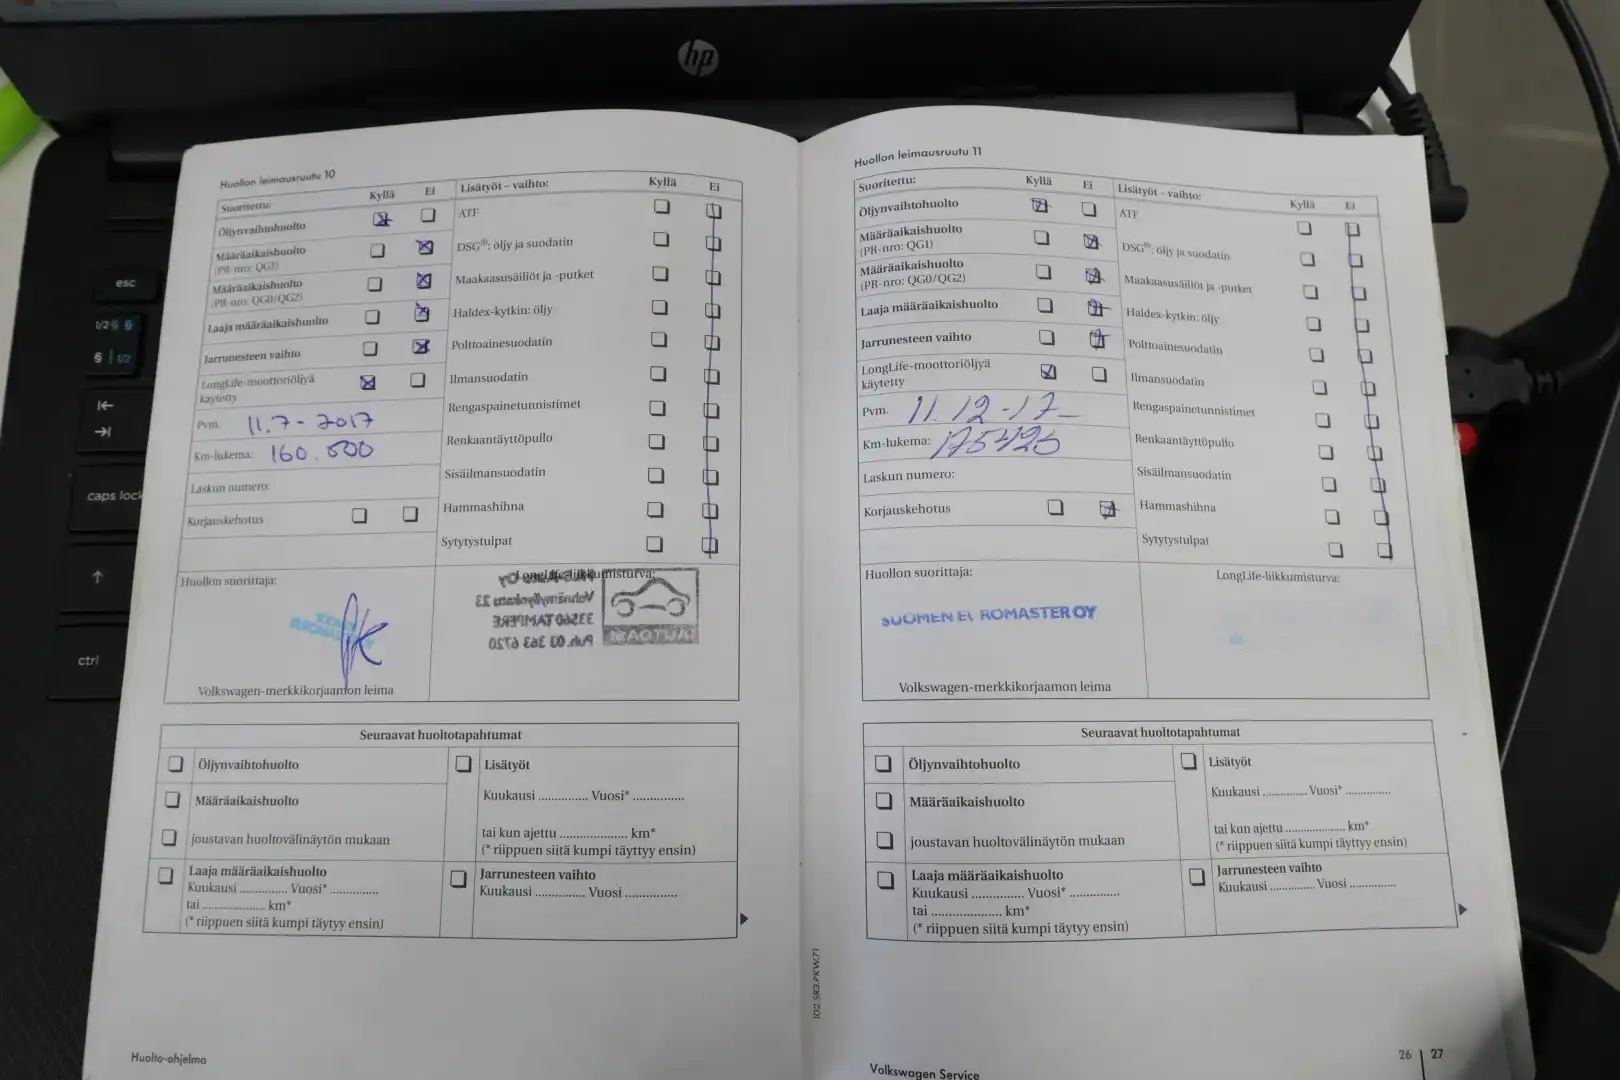 hp
esc
1/2 § §
§ 1/2
caps lock
ctrl
Huollon leimausruutu 10
Suoritettu: Kyllä Ei
Öljynvaihtohuolto
Määräaikaishuolto
(PR-nro: QG1)
Määräaikaishuolto
(PR-nro: QG0/QG2)
Laaja määräaikaishuolto
Jarrunesteen vaihto
LongLife-moottoriöljyä
käytetty
Pvm. 11.7-2017
Km-lukema: 160.500
Laskun numero:
Korjauskehotus
Lisätyöt – vaihto: Kyllä Ei
ATF
DSG®: öljy ja suodatin
Maakaasusäiliöt ja -putket
Haldex-kytkin: öljy
Polttoainesuodatin
Ilmansuodatin
Rengaspainetunnistimet
Renkaantäyttöpullo
Sisäilmansuodatin
Hammashihna
Sytytystulpat
Huollon suorittaja:
Volkswagen-merkkikorjaamon leima
LongLife-liikkumisturva:
33560 TAMPERE
Puh. 03 363 6720
AUTOASI
Seuraavat huoltotapahtumat
Öljynvaihtohuolto
Määräaikaishuolto
joustavan huoltovälinäytön mukaan
Laaja määräaikaishuolto
Kuukausi .............. Vuosi* ..............
tai .................... km*
(* riippuen siitä kumpi täytyy ensin)
Lisätyöt
Kuukausi .............. Vuosi* ..............
tai kun ajettu .................... km*
(* riippuen siitä kumpi täyttyy ensin)
Jarrunesteen vaihto
Kuukausi .............. Vuosi ..............
Huolto-ohjelma
102.5R3.PKW.71
Huollon leimausruutu 11
Suoritettu: Kyllä Ei
Öljynvaihtohuolto
Määräaikaishuolto
(PR-nro: QG1)
Määräaikaishuolto
(PR-nro: QG0/QG2)
Laaja määräaikaishuolto
Jarrunesteen vaihto
LongLife-moottoriöljyä
käytetty
Pvm. 11.12-17
Km-lukema: 175426
Laskun numero:
Korjauskehotus
Lisätyöt – vaihto: Kyllä Ei
ATF
DSG®: öljy ja suodatin
Maakaasusäiliöt ja -putket
Haldex-kytkin: öljy
Polttoainesuodatin
Ilmansuodatin
Rengaspainetunnistimet
Renkaantäyttöpullo
Sisäilmansuodatin
Hammashihna
Sytytystulpat
Huollon suorittaja:
SUOMEN EUROMASTER OY
Volkswagen-merkkikorjaamon leima
LongLife-liikkumisturva:
Seuraavat huoltotapahtumat
Öljynvaihtohuolto
Määräaikaishuolto
joustavan huoltovälinäytön mukaan
Laaja määräaikaishuolto
Kuukausi .............. Vuosi* ..............
tai .................... km*
(* riippuen siitä kumpi täytyy ensin)
Lisätyöt
Kuukausi .............. Vuosi* ..............
tai kun ajettu .................... km*
(* riippuen siitä kumpi täyttyy ensin)
Jarrunesteen vaihto
Kuukausi .............. Vuosi ..............
Volkswagen Service
26 | 27